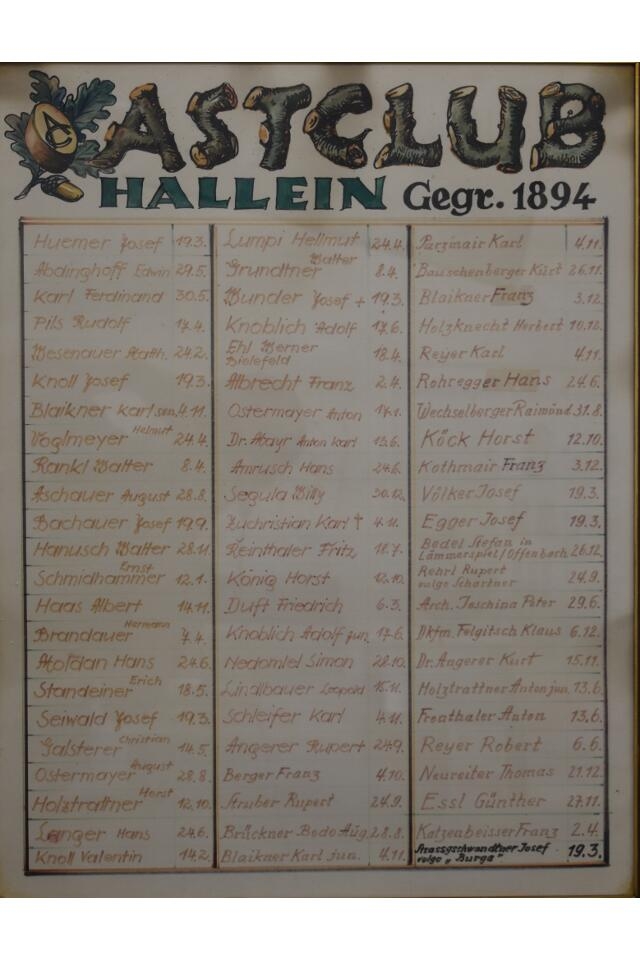 ASTCLUB
HALLEIN Gegr. 1894
Huemer Josef 19.3.
Abdinghoff Edwin 29.5.
Karl Ferdinand 30.5.
Pils Rudolf 17.4.
Wesenauer Matth. 24.2.
Knoll Josef 19.3.
Blaikner Karl sen. 4.11.
Voglmeyer Helmut 24.4.
Rankl Walter 8.4.
Aschauer August 28.8.
Bachauer Josef 19.9.
Hanusch Walter 28.11.
Schmidhammer Ernst 12.1.
Haas Albert 14.11.
Brandauer Hermann 7.4.
Hans 24.6.
Standeiner Erich 18.5.
Seiwald Josef 19.3.
Galsterer Christian 14.5.
Ostermayer August 28.8.
Holztrattner Horst 12.10.
Langer Hans 24.6.
Knoll Valentin 14.2.
Lumpi Hellmut 24.4.
Grundtner Walter 8.4.
Wunder Josef + 19.3.
Knoblich Adolf 17.6.
Ehl Werner
Bielefeld 18.4.
Albrecht Franz 2.4.
Ostermayer Anton 17.1.
Dr. Mayr Anton Karl 13.6.
Amrusch Hans 24.6.
Segula Willy 30.12.
Zuchristian Karl † 4.11.
Reinthaler Fritz 18.7.
König Horst 12.10.
Duft Friedrich 6.3.
Knoblich Adolf jun. 17.6.
Nedomlel Simon 28.10.
Lindlbauer Leopold 15.11.
Schleifer Karl 4.11.
Angerer Rupert 24.9.
Berger Franz 4.10.
Struber Rupert 24.9.
Brückner Bodo Aug. 28.8.
Blaikner Karl jun. 4.11.
Parzinair Karl 4.11.
Bauschenberger Kurt 26.11.
Blaikner Franz 3.12.
Holzknecht Herbert 10.12.
Reyer Karl 4.11.
Rohregger Hans 24.6.
Wechselberger Raimund 31.8.
Köck Horst 12.10.
Kothmair Franz 3.12.
Völker Josef 19.3.
Egger Josef 19.3.
Bedel Stefan in
Lämmerspiel/Offenbach 26.12.
Rehrl Rupert
vulgo Schartner 24.9.
Arch. Jeschina Peter 29.6.
Dkfm. Felgitsch Klaus 6.12.
Dr. Angerer Kurt 15.11.
Holztrattner Anton jun. 13.6.
Frenthaler Anton 13.6.
Reyer Robert 6.6.
Neureiter Thomas 21.12.
Essl Günther 27.11.
Katzenbeisser Franz 2.4.
Strassgschwandtner Josef
vulgo „Burga" 19.3.